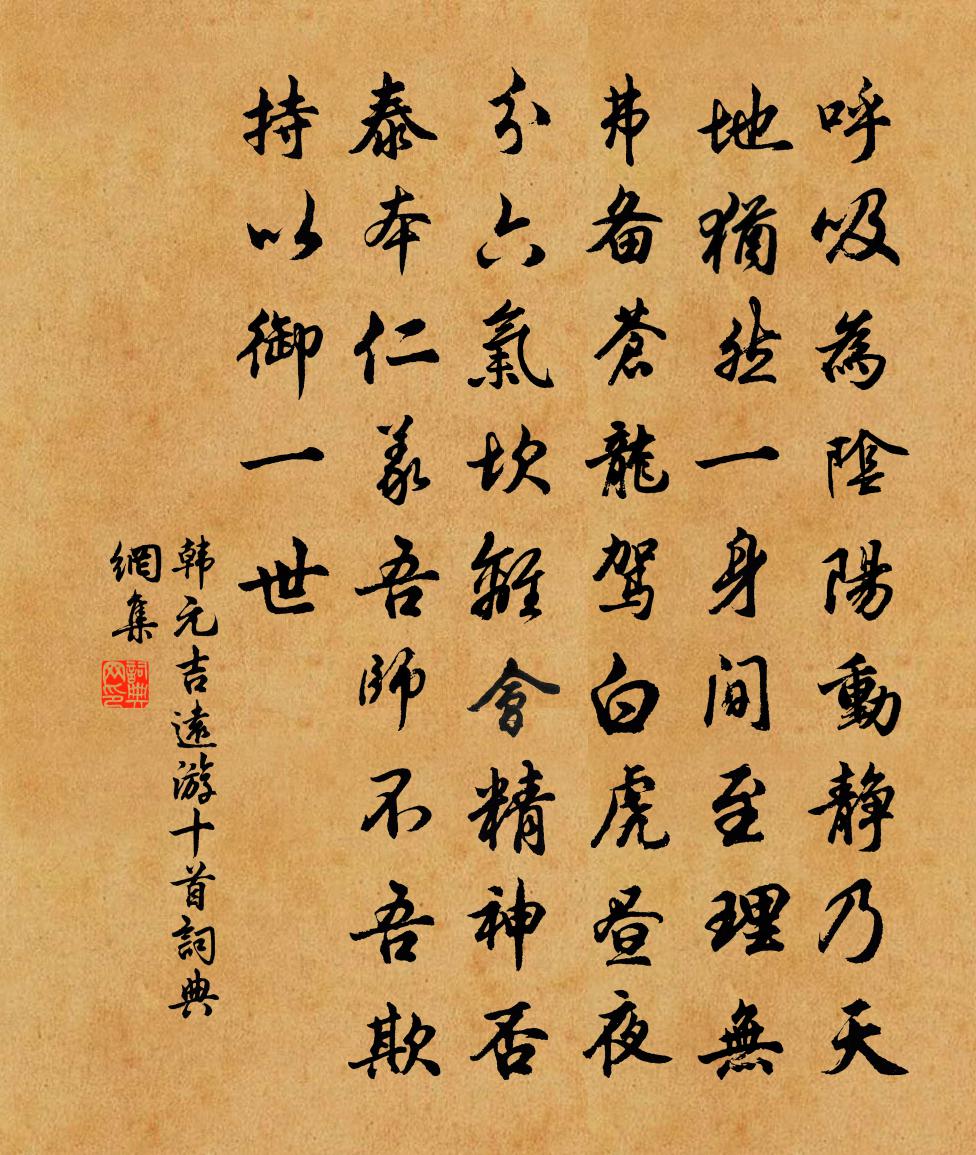 呼吸為陰陽動靜乃天
地猶然一身間至理無
弗备蒼龍駕白虎昼夜
分六氣坎離會精神否
泰本仁義吾師不吾欺
持以御一世
韩元吉遠游十首詞典
網集
詞典網印